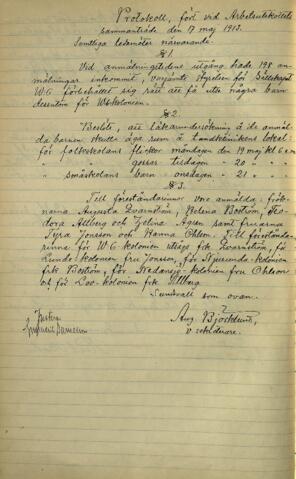 Protokoll, fört vid Arbetsutskottets
sammanträde den 17 maj 1913.
Samtliga ledamöter närvarande.
§ 1.
Vid anmälningstidens utgång hade 198 an-
mälningar inkommit, varjämte styrelsen för Sällskapet
W 6 förbehållit sig rätt att få utse några barn
dessutom för W6kolonien.
§ 2.
Beslöts, att läkarundersökning å de anmäl-
da barnen skulle äga rum å Tandklinikens lokal
för folkskolans flickor måndagen den 19 maj kl 6 e.m.
" " gossar tisdagen " 20 " "
" småskolans barn onsdagen " 21 " "
§ 3.
Till föreståndarinnor voro anmälda: frök-
narna Augusta Svarnström, Helena Boström, Teo-
dora Allberg och Selma Ågren samt fruarna
Tyra Jonsson och Hanna Ohlson. Till föreståndar-
inna för W 6-kolonien utsågs frk Svarnström, för
Lunde-kolonien fru Jonsson, för Njurunda-kolonien
frk Boström, för Nedansjö-kolonien fru Ohlson
och för Loo-kolonien frk Allberg.
Sundsvall som ovan.
Aug. Björklund,
v. sekreterare.
Justera